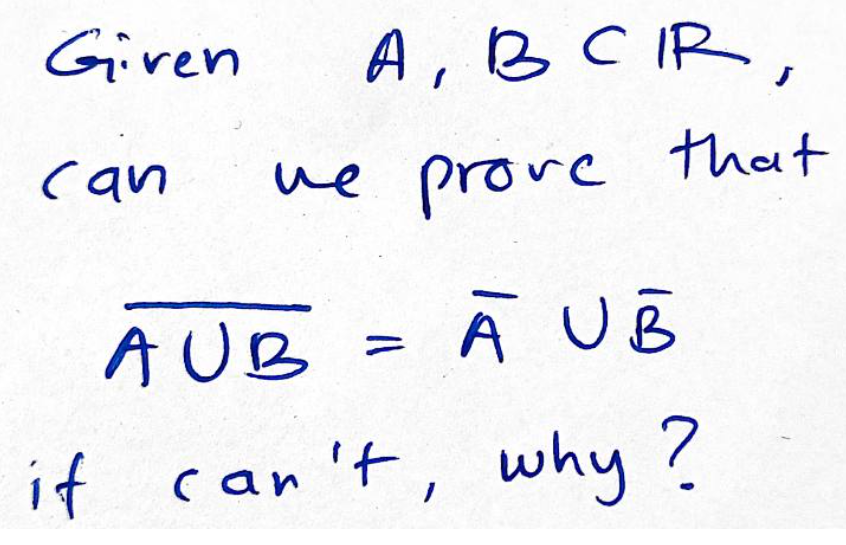 Given A, B ⊂ ℝ,
can we prove that
$\overline{A \cup B} = \bar{A} \cup \bar{B}$
if can't, why?